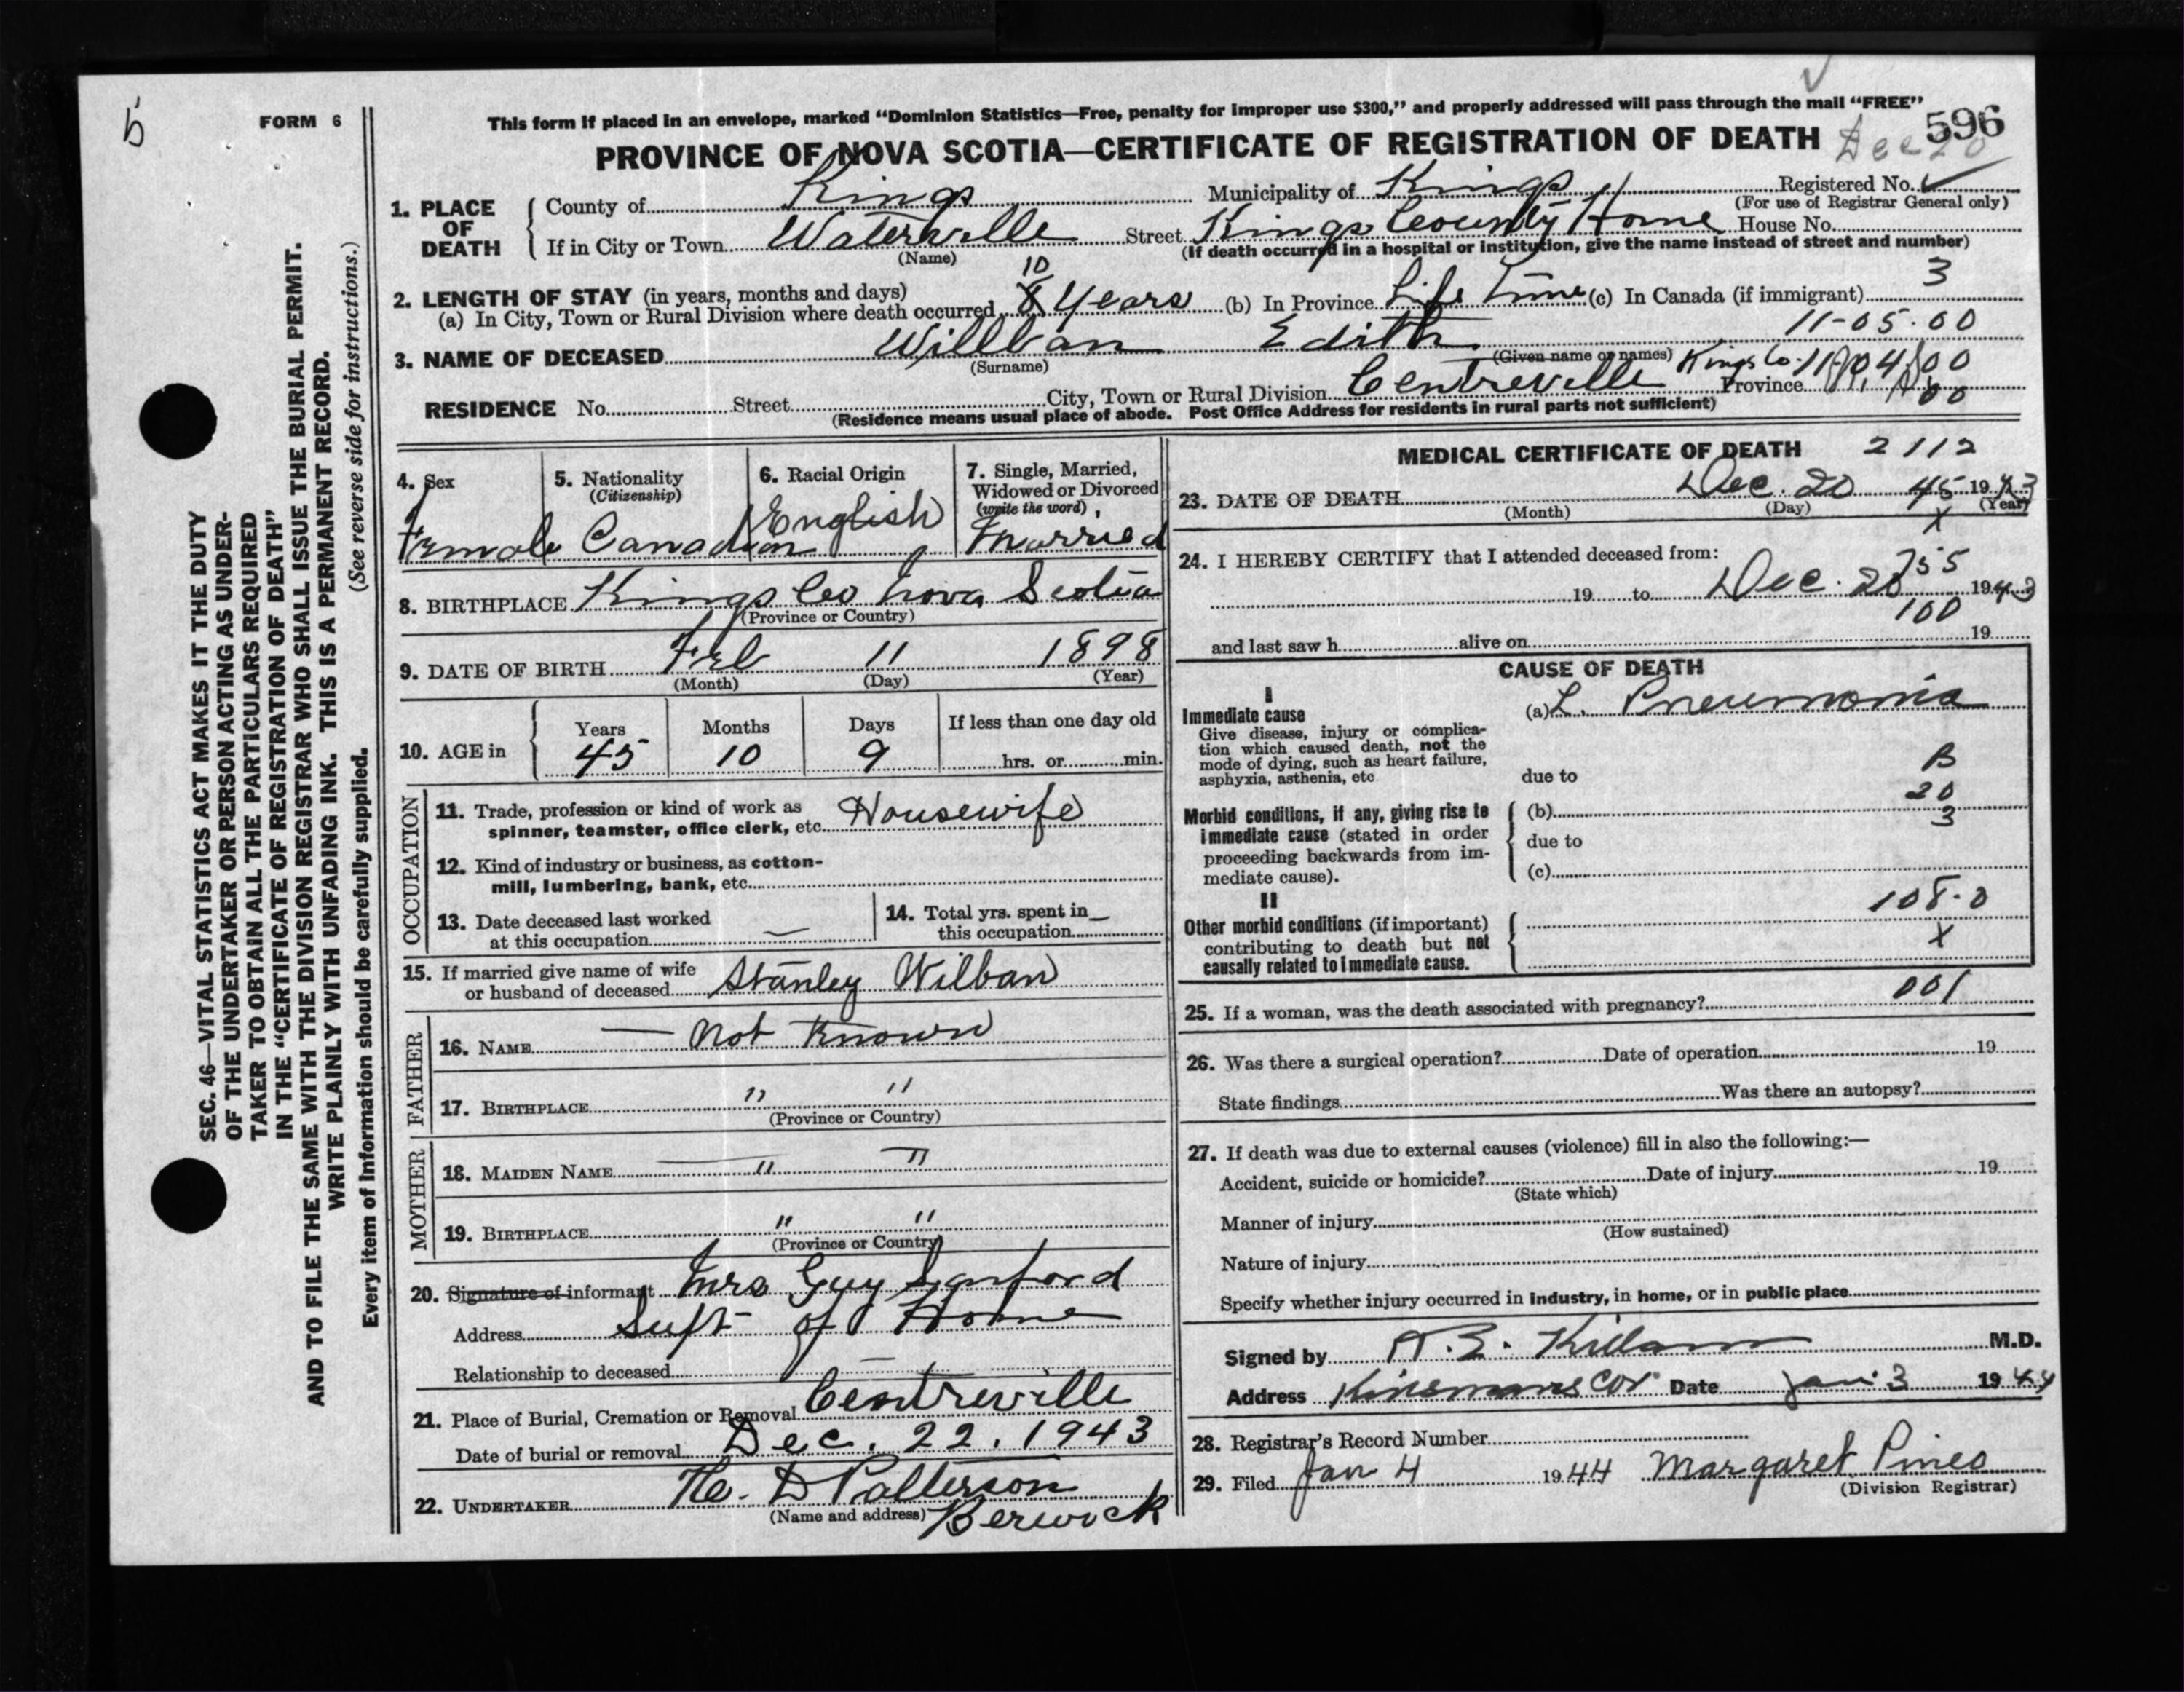 This form if placed in an envelope, marked “Dominion Statistics—Free, penalty for improper use $300,” and properly addressed will pass through the mail “FREE”
FORM 6
596
PROVINCE OF NOVA SCOTIA—CERTIFICATE OF REGISTRATION OF DEATH Dec 20
1. PLACE OF DEATH
County of Kings Municipality of Kings Registered No.
(For use of Registrar General only)
If in City or Town Waterville Street Kings County Home House No.
(Name) (If death occurred in a hospital or institution, give the name instead of street and number)
2. LENGTH OF STAY (in years, months and days)
(a) In City, Town or Rural Division where death occurred 10 years (b) In Province Life Time (c) In Canada (if immigrant) 3
11-05.00
3. NAME OF DECEASED Willban Edith
(Surname) (Given name or names) Kings Co.
RESIDENCE No. Street City, Town or Rural Division Centreville Province
(Residence means usual place of abode. Post Office Address for residents in rural parts not sufficient)
4. Sex
Female
5. Nationality
(Citizenship)
Canadian
6. Racial Origin
English
7. Single, Married,
Widowed or Divorced
(write the word)
Married
8. BIRTHPLACE Kings Co Nova Scotia
(Province or Country)
9. DATE OF BIRTH Feb 11 1898
(Month) (Day) (Year)
10. AGE in
Years Months Days If less than one day old
45 10 9 hrs. or min.
OCCUPATION
11. Trade, profession or kind of work as
spinner, teamster, office clerk, etc. Housewife
12. Kind of industry or business, as cotton-
mill, lumbering, bank, etc.
13. Date deceased last worked
at this occupation —
14. Total yrs. spent in
this occupation —
15. If married give name of wife
or husband of deceased Stanley Wilban
FATHER
16. NAME — Not Known
17. BIRTHPLACE " "
(Province or Country)
MOTHER
18. MAIDEN NAME " "
19. BIRTHPLACE " "
(Province or Country)
20. Signature of informant Mrs Guy Sanford
Address Supt of Home
Relationship to deceased
21. Place of Burial, Cremation or Removal Centreville
Date of burial or removal Dec. 22. 1943
22. UNDERTAKER D Patterson
(Name and address) Berwick
MEDICAL CERTIFICATE OF DEATH 2112
23. DATE OF DEATH Dec. 20 45 1943
(Month) (Day) (Year)
X
24. I HEREBY CERTIFY that I attended deceased from:
755
19 to Dec. 20 1943
100
and last saw h alive on 19
CAUSE OF DEATH
I
Immediate cause
Give disease, injury or complica-
tion which caused death, not the
mode of dying, such as heart failure,
asphyxia, asthenia, etc
(a) L. Pneumonia
B
due to
20
Morbid conditions, if any, giving rise to
immediate cause (stated in order
proceeding backwards from im-
mediate cause).
(b)
3
due to
(c)
II
108-0
Other morbid conditions (if important)
contributing to death but not
causally related to immediate cause.
X
001
25. If a woman, was the death associated with pregnancy?
26. Was there a surgical operation? Date of operation 19
State findings Was there an autopsy?
27. If death was due to external causes (violence) fill in also the following:—
Accident, suicide or homicide? Date of injury 19
(State which)
Manner of injury
(How sustained)
Nature of injury
Specify whether injury occurred in industry, in home, or in public place
Signed by Killam M.D.
Address Kinsmans Cor Date Jan 3 1944
28. Registrar's Record Number
29. Filed Jan 4 1944 Margaret Pineo
(Division Registrar)
SEC. 46—VITAL STATISTICS ACT MAKES IT THE DUTY
OF THE UNDERTAKER OR PERSON ACTING AS UNDER-
TAKER TO OBTAIN ALL THE PARTICULARS REQUIRED
IN THE “CERTIFICATE OF REGISTRATION OF DEATH”
AND TO FILE THE SAME WITH THE DIVISION REGISTRAR WHO SHALL ISSUE THE BURIAL PERMIT.
WRITE PLAINLY WITH UNFADING INK. THIS IS A PERMANENT RECORD.
Every item of information should be carefully supplied. (See reverse side for instructions.)